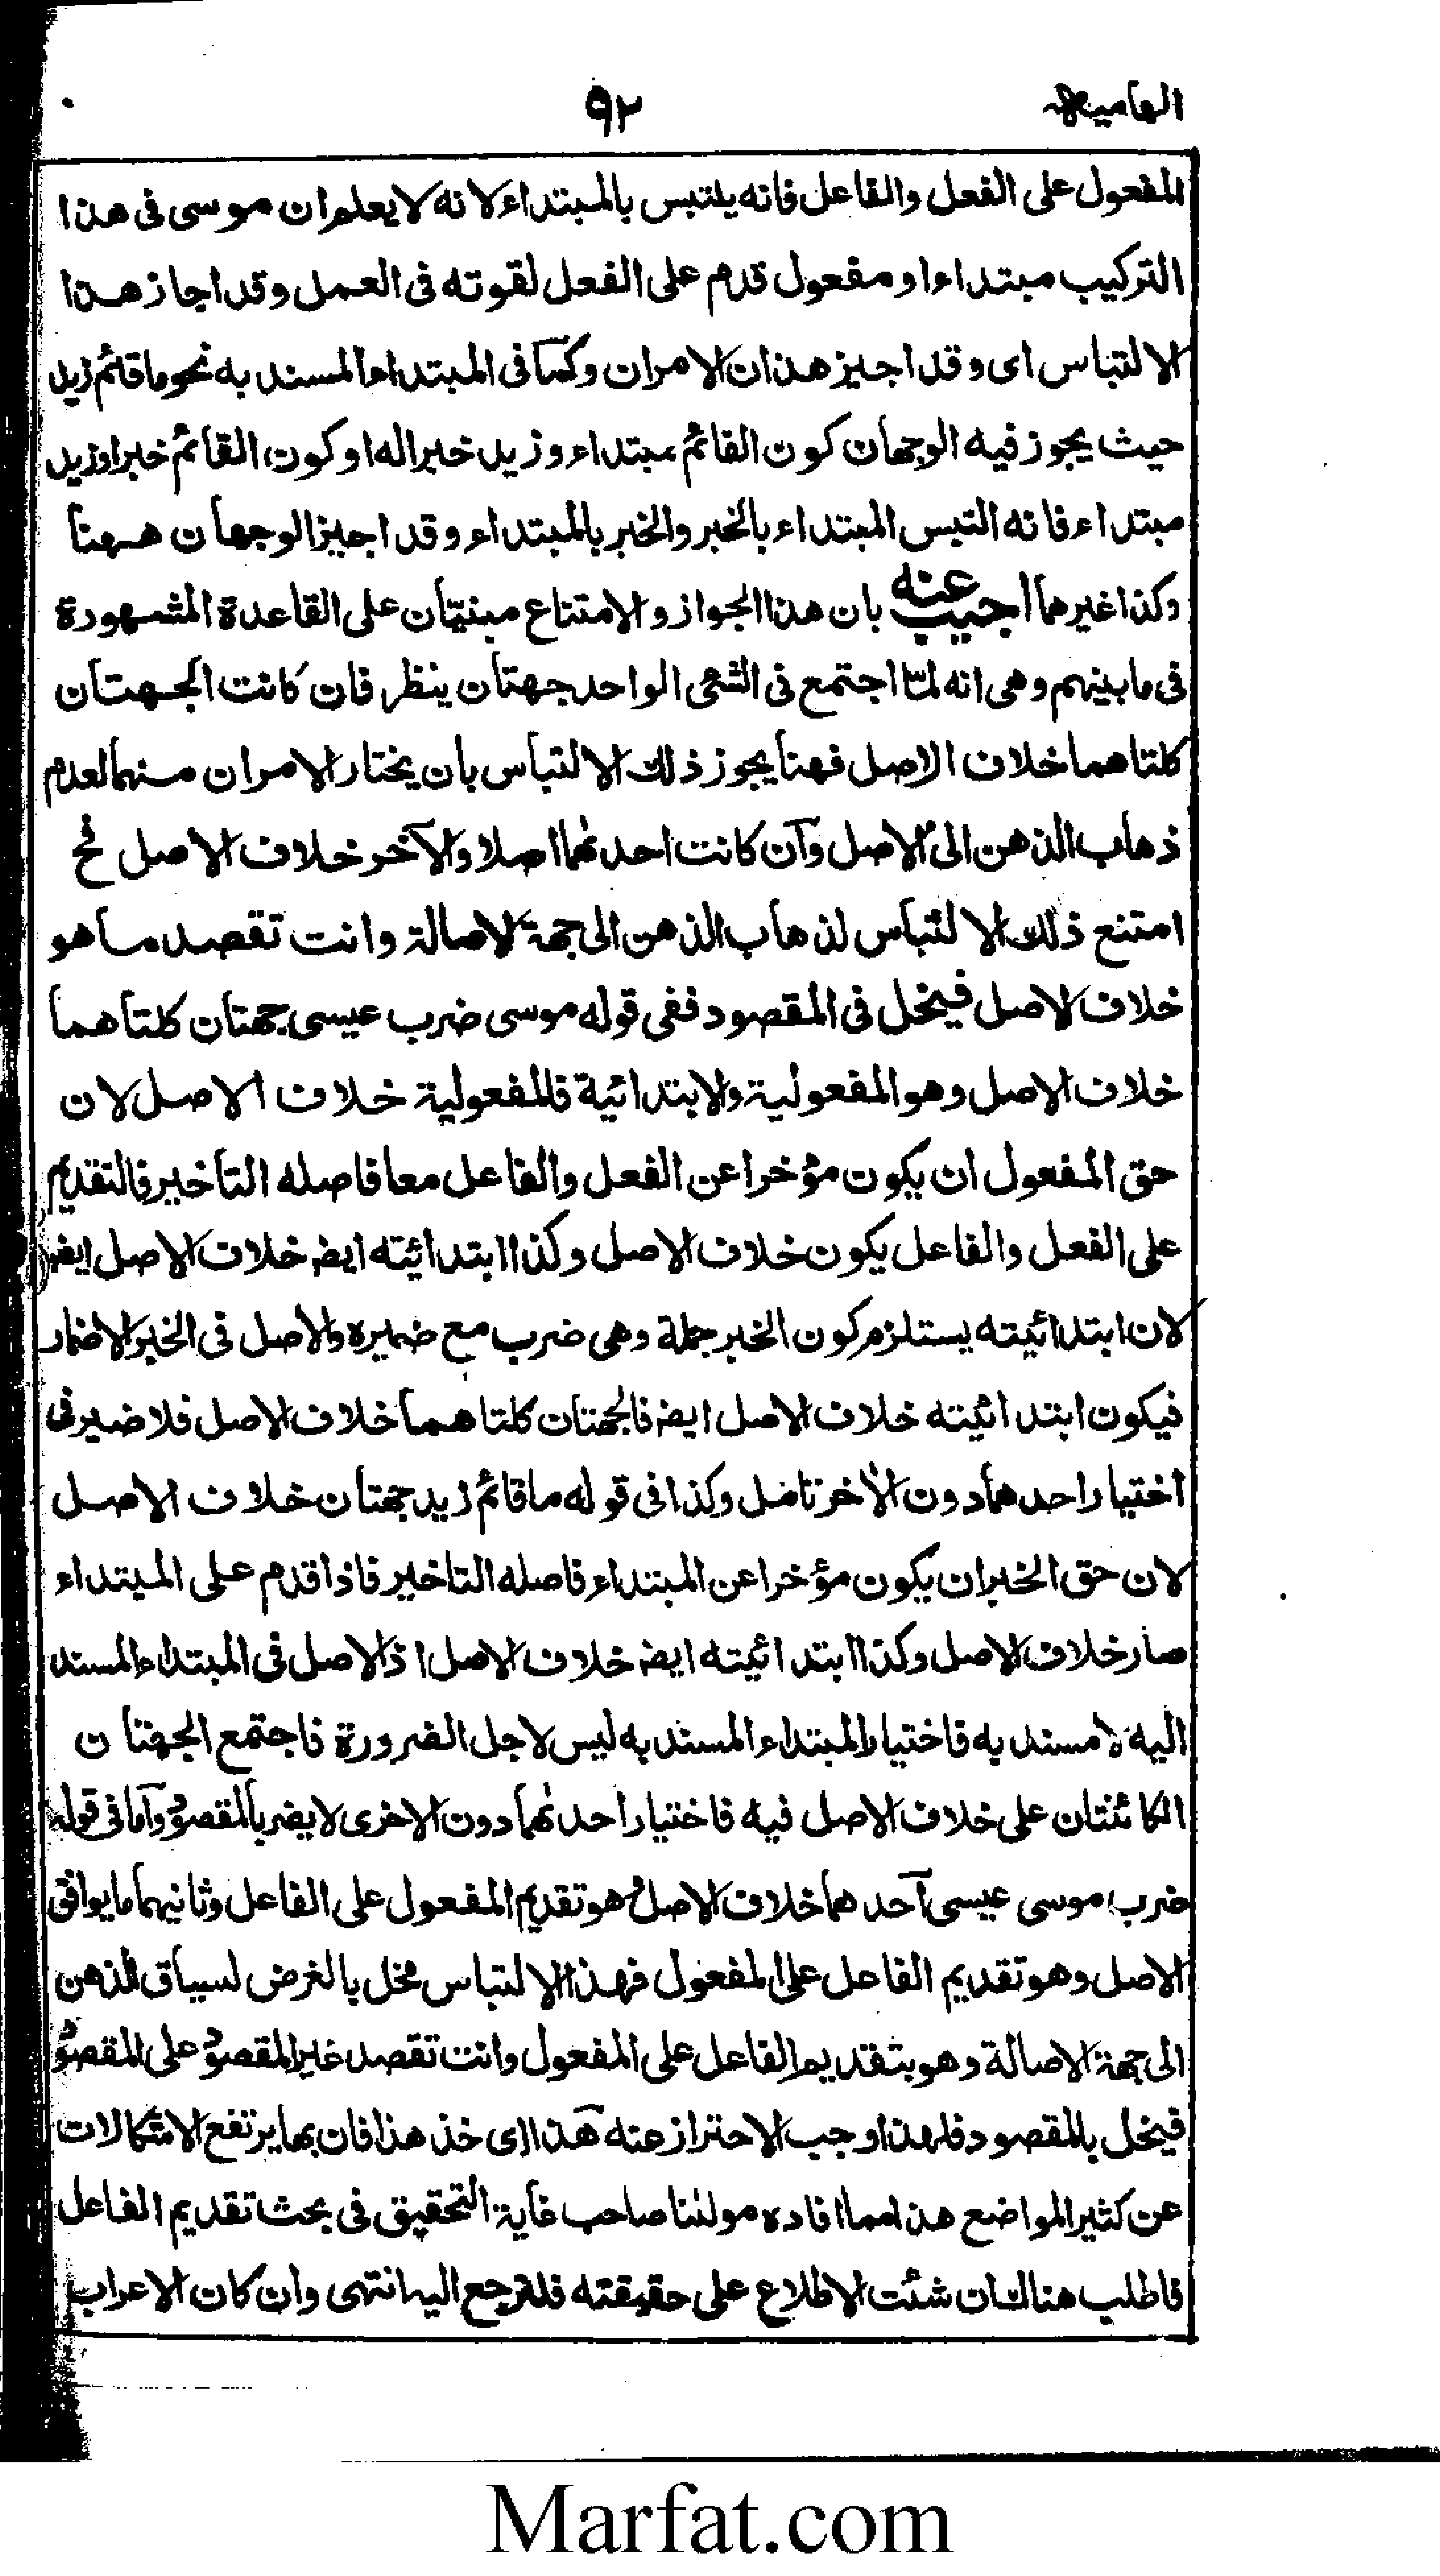 الهامیه
۹۲
المفعول علی الفعل والفاعل فانه یلتبس بالمبتداء لانه لا یعلم ان موسی فی هذا
الترکیب مبتداء او مفعول قدم علی الفعل لقوته فی العمل وقد اجاز هذا
الالتباس ای وقد اجیز هذان الامران وکما فی المبتداء المسند به نحو ما قائم زید
حیث یجوز فیه الوجهان کون القائم مبتداء وزید خبرا له او کون القائم خبرا وزید
مبتداء فانه التبس المبتداء بالخبر والخبر بالمبتداء وقد اجیز الوجهان ههنا
وکذا غیرهما اجیب عنه بان هذا الجواز والامتناع مبنیّان علی القاعدة المشهورة
فی ما بینهم وهی انه لمّا اجتمع فی الشئ الواحد جهتان ینظر فان کانت الجهتان
کلتا هما خلاف الاصل فهنا یجوز ذلک الالتباس بان یختار الامران منهما لعدم
ذهاب الذهن الی الاصل وآن کانت احدٰهما اصلا والآخر خلاف الاصل فح
امتنع ذلک الالتباس لذهاب الذهن الی جهة الاصالة وانت تقصد ما هو
خلاف الاصل فیخل فی المقصود ففی قوله موسی ضرب عیسی جهتان کلتا هما
خلاف الاصل وهو المفعولیة والابتدائیة فالمفعولیة خلاف الاصل لان
حق المفعول ان یکون مؤخرا عن الفعل والفاعل معا فاصله التأخیر فالتقدیم
علی الفعل والفاعل یکون خلاف الاصل وکذا ابتدائیته ایضہ خلاف الاصل ایضہ
لان ابتدائیته یستلزم کون الخبر جملة وهی ضرب مع ضمیره والاصل فی الخبر الاضمار
فیکون ابتدائیته خلاف الاصل ایضہ فالجهتان کلتا هما خلاف الاصل فلا ضیر فی
اختیار احدهما دون الاٰخر تامل وکذا فی قوله ما قائم زید جهتان خلاف الاصل
لان حق الخبر ان یکون مؤخرا عن المبتداء فاصله التاخیر فاذا قدم علی المبتداء
صار خلاف الاصل وکذا ابتدائیته ایضہ خلاف الاصل اذ الاصل فی المبتداء المسند
الیه لا مسند به فاختیار المبتداء المسند به لیس لاجل الضرورة فاجتمع الجهتان
الکائنتان علی خلاف الاصل فیه فاختیار احدٰهما دون الاخری لا یضر بالمقصود وآما فی قوله
ضرب موسی عیسی آحدهما خلاف الاصل وهو تقدیم المفعول علی الفاعل وثانیهما ما یوافق
الاصل وهو تقدیم الفاعل علی المفعول فهذا الالتباس مخل بالغرض لسباق الذهن
الی جهة الاصالة وهو بتقدیم الفاعل علی المفعول وانت تقصد غیر المقصود علی المقصود
فیخل بالمقصود فلهذا وجب الاحتراز عنه هٓذا ای خذ هذا فان بها یرتفع الاشکالات
عن کثیر المواضع هذا مما افاده مولٰنا صاحب غایة التحقیق فی بحث تقدیم الفاعل
فاطلب هناک ان شئت الاطلاع علی حقیقته فلترجع الیہ انتهی وان کان الاعراب
Marfat.com